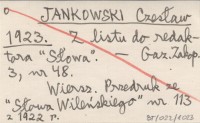 JANKOWSKI Czesław
1923. Z listu do redak-
tora "Słowa". — Gaz. Zakop.
3, nr 48.
Wiersz. Przedruk ze
"Słowa Wileńskiego" nr 113
z 1922 r.